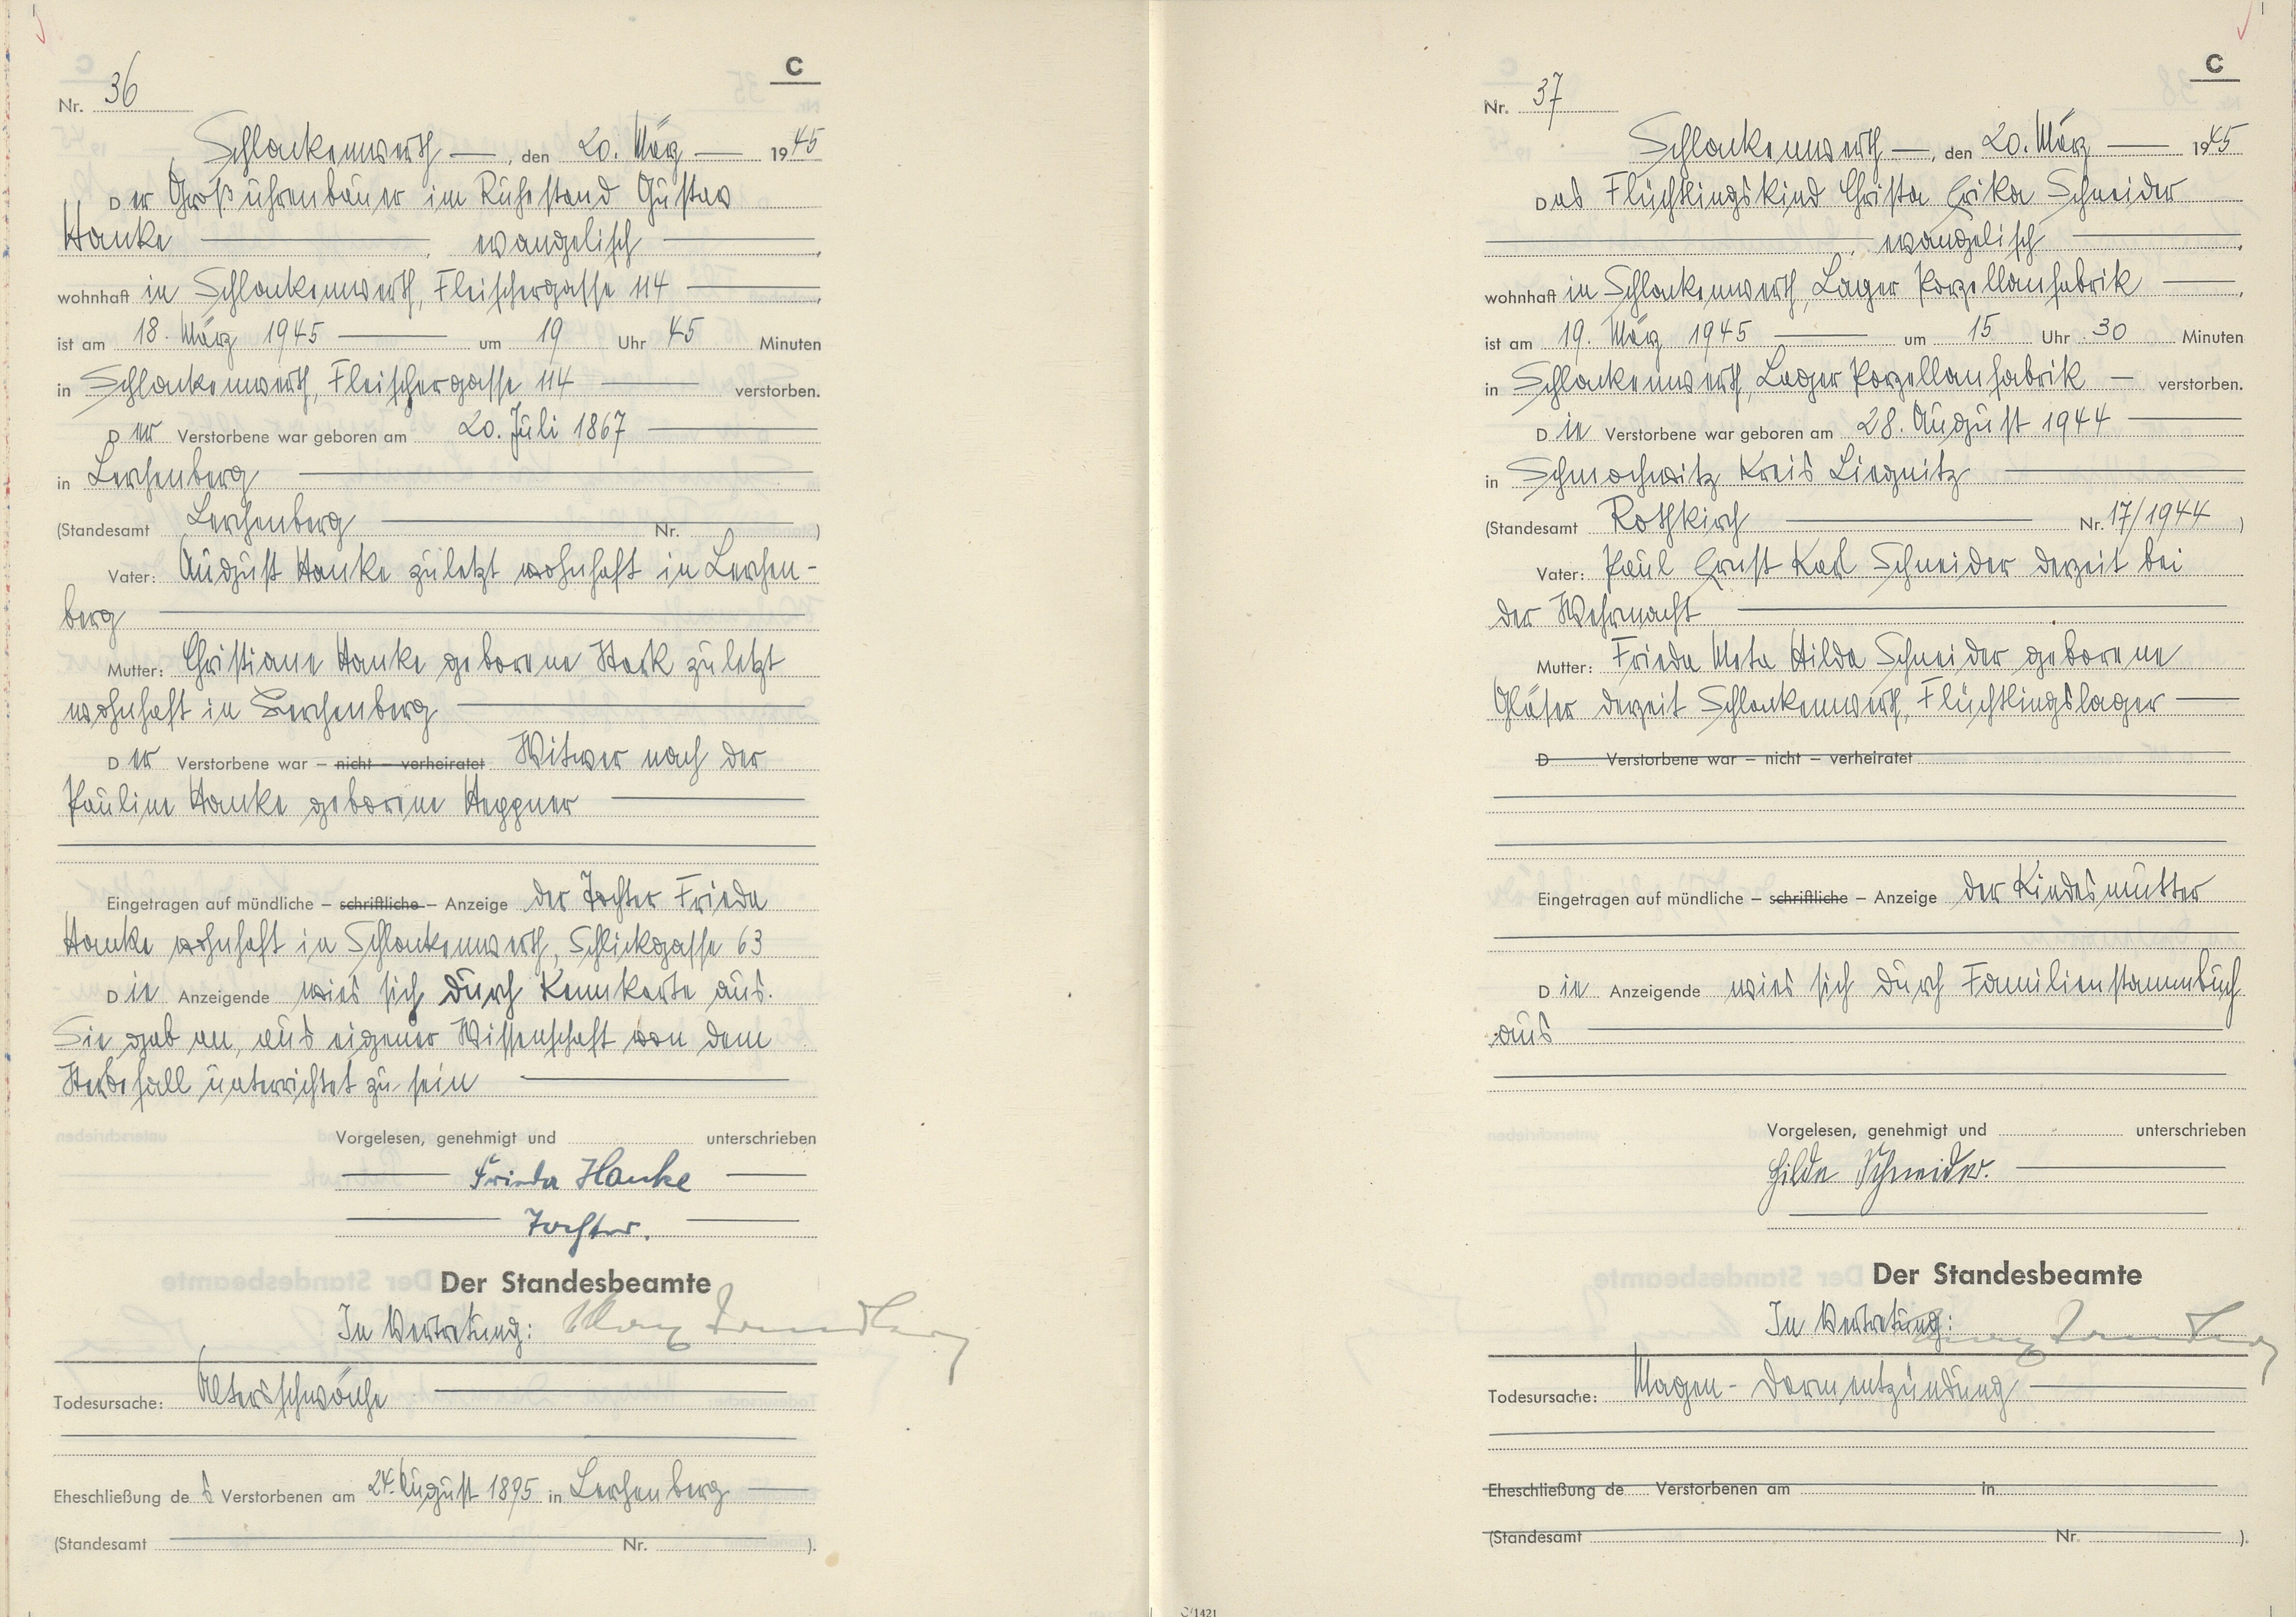 C
Nr. 36
Schlackenwerth —, den 20. März — 1945
Der Großuhrenbauer im Ruhestand Gustav
Hanke —, evangelisch —,
wohnhaft in Schlackenwerth, Fleischergasse 114 —,
ist am 18. März 1945 — um 19 Uhr 45 Minuten
in Schlackenwerth, Fleischergasse 114 — verstorben.
Der Verstorbene war geboren am 20. Juli 1867 —
in Lerchenberg —
(Standesamt Lerchenberg — Nr. )
Vater: August Hanke zuletzt wohnhaft in Lerchen-
berg —
Mutter: Christiane Hanke geborene Stark zuletzt
wohnhaft in Lerchenberg —
Der Verstorbene war – nicht – verheiratet Witwer nach der
Pauline Hanke geborene Heppner —
Eingetragen auf mündliche – schriftliche – Anzeige der Tochter Frieda
Hanke wohnhaft in Schlackenwerth, Schlickgasse 63
Die Anzeigende wies sich durch Kennkarte aus.
Sie gab an, aus eigener Wissenschaft von dem
Sterbefall unterrichtet zu sein —
Vorgelesen, genehmigt und unterschrieben
— Frieda Hanke —
— Tochter. —
Der Standesbeamte
In Vertretung:
Todesursache: Altersschwäche —
Eheschließung des Verstorbenen am 24. August 1895 in Lerchenberg —
(Standesamt — Nr. ).
C
Nr. 37
Schlackenwerth —, den 20. März — 1945
Das Flüchtlingskind Christa Erika Schneider
—, evangelisch —,
wohnhaft in Schlackenwerth, Lager Porzellanfabrik —,
ist am 19. März 1945 — um 15 Uhr 30 Minuten
in Schlackenwerth, Lager Porzellanfabrik — verstorben.
Die Verstorbene war geboren am 28. August 1944 —
in Schmochwitz Kreis Liegnitz —
(Standesamt Rothkirch — Nr. 17/1944 )
Vater: Paul Ernst Karl Schneider derzeit bei
der Wehrmacht —
Mutter: Frieda Meta Hilda Schneider geborene
Gläser derzeit Schlackenwerth, Flüchtlingslager —
D Verstorbene war – nicht – verheiratet
Eingetragen auf mündliche – schriftliche – Anzeige der Kindesmutter
Die Anzeigende wies sich durch Familienstammbuch
aus —
Vorgelesen, genehmigt und unterschrieben
Hilde Schneider. —
Der Standesbeamte
In Vertretung:
Todesursache: Magen- Darmentzündung —
Eheschließung de Verstorbenen am in
(Standesamt Nr. ).
C/1421